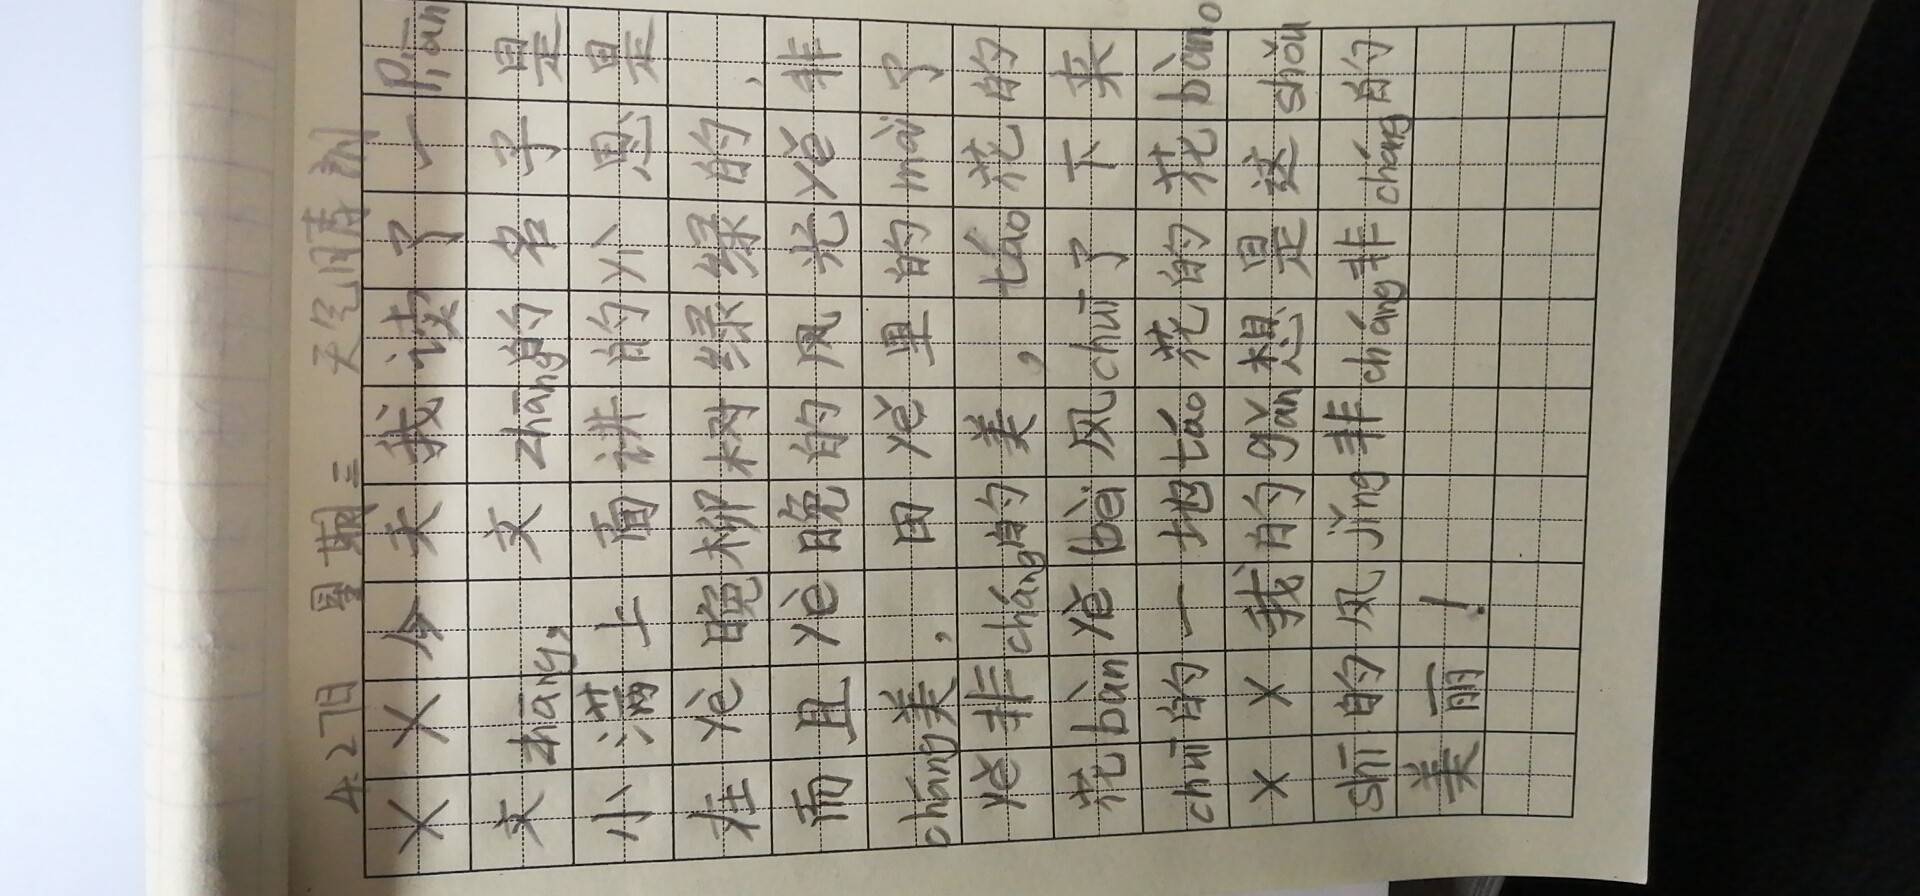 4.27日 星期三 天气晴朗
XX今天我读了一piān
文zhāng,文zhāng的名子是
小满上面讲的思是
在yè晚柳树绿绿的,
而且yè晚的风光yě非
cháng美,田yě里的mài了
yě非cháng的美,táo花的
花bàn yě bèi风chuī了下来
chuī的一地táo花的花bàn。
XX我的gǎn想是这shǒu
shī的风jǐng非cháng非cháng的
美丽!